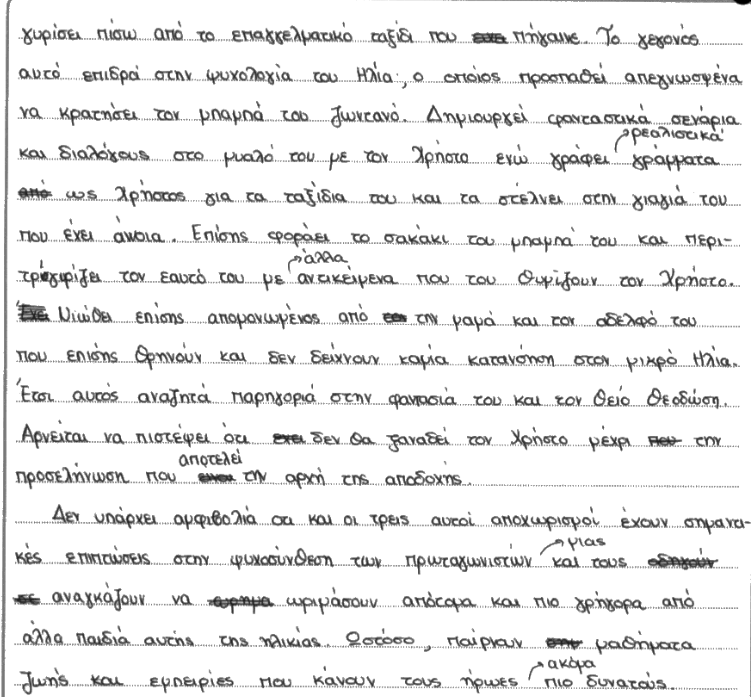 γυρίσει πίσω από το επαγγελματικό ταξίδι που πήγαινε. Το γεγονός
αυτό επιδρά στην ψυχολογία του Ηλία, ο οποίος προσπαθεί απεγνωσμένα
να κρατήσει τον μπαμπά του ζωντανό. Δημιουργεί φανταστικά σενάρια
και διαλόγους στο μυαλό του με τον Χρήστο ενώ γράφει ρεαλιστικά γράμματα
από ως Χρήστος για τα ταξίδια του και τα στέλνει στην γιαγιά του
που έχει άνοια. Επίσης φοράει το σακάκι του μπαμπά του και περι-
τριγυρίζει τον εαυτό του με άλλα αντικείμενα που του θυμίζουν τον Χρήστο.
Νιώθει επίσης απομονωμένος από την μαμά και τον αδελφό του
που επίσης θρηνούν και δεν δείχνουν καμία κατανόηση στον μικρό Ηλία.
Έτσι αυτός αναζητά παρηγοριά στην φαντασία του και τον θείο Θεοδώση.
Αρνείται να πιστέψει ότι δεν θα ξαναδεί τον Χρήστο μέχρι την
προσελήνωση που αποτελεί την αρχή της αποδοχής.
Δεν υπάρχει αμφιβολία οτι και οι τρεις αυτοί αποχωρισμοί έχουν σημαντι-
κές επιπτώσεις στην ψυχοσύνθεση των πρωταγωνιστών μιας και τους οδηγούν
σε αναγκάζουν να ωριμάσουν απότομα και πιο γρήγορα από
άλλα παιδιά αυτής της ηλικίας. Ωστόσο, παίρνουν μαθήματα
ζωής και εμπειρίες που κάνουν τους ήρωες ακόμα πιο δυνατούς.